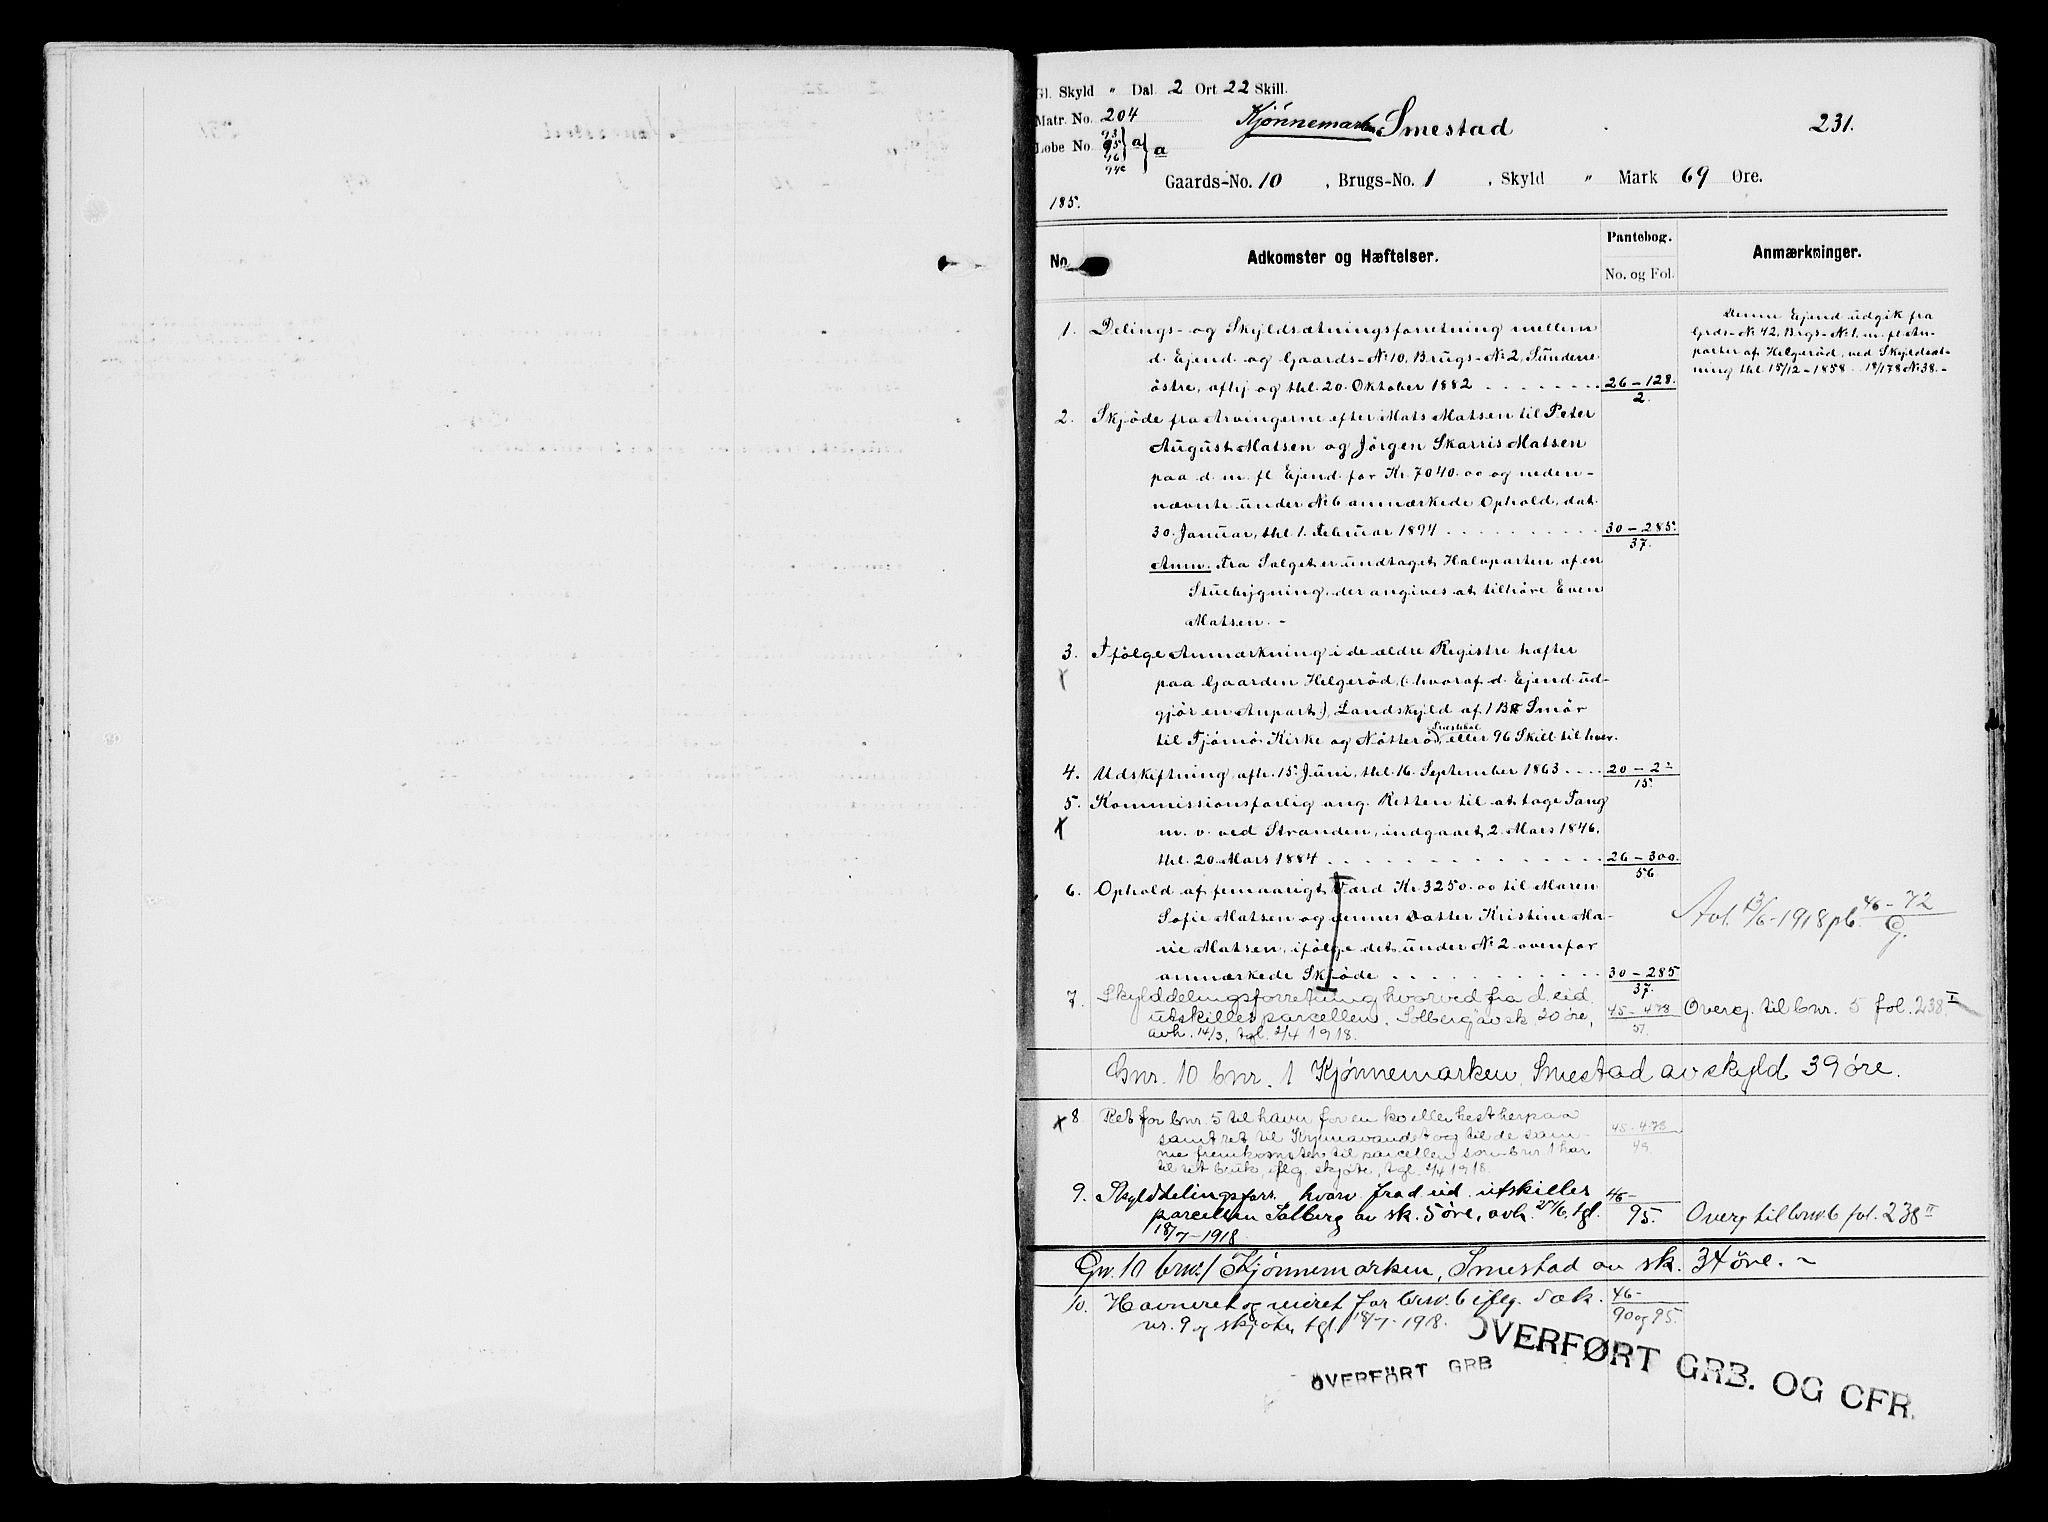 Gl. Skyld " Dal. 2 Ort 22 Skill.
Matr. No. 204
Kjønnemarken Smestad
231.
Løbe No 93 95 96 94c } a } a
Gaards-No. 10, Brugs-No. 1, Skyld " Mark 69 Øre.
185.
No.
Adkomster og Hæftelser.
Pantebog.
No. og Fol.
Anmærkninger.
1. Delings- og Skyldsætningsforretning mellem
d. Ejend. og Gaards-No 10, Brugs-No 2, Sundene
østre, afhj og thl. 20. Oktober 1882 26-128. 2.
Denne Ejend udgik fra
Grds-No 42, Brgs-No 1. m. fl. An-
parter af Helgerød, ved Skyldsæt-
ning thl. 15/12-1858. 18/178 No 38.-
2. Skjøde fra Arvingerne efter Mats Matsen til Peter
August Matsen og Jørgen Skarris Matsen
paa d. m. fl. Ejend. for Kr. 7040.00 og neden-
nævnte under No 6 anmærkede Ophold, dat.
30. Januar, thl. 1. Februar 1894 30-285. 37.
Anm. Fra Salget er undtaget Halvparten af en
Stuebygning, der angives at tilhøre Even
Matsen.-
3. Ifølge Anmærkning i de ældre Registre hæfter
paa Gaarden Helgerød, (hvoraf d. Ejend. ud-
gjør en Anpart), Landskyld af 1 B℔ Smør
til Tjømø Kirke og Nøtterø eller 96 Skill. til hver.
4. Udskiftning, afh. 15. Juni, thl. 16. September 1863 20-2 15.
5. Kommissionsforlig ang. Retten til at tage Tang
m. v. ved Stranden, indgaaet 2. Mars 1846,
thl. 20. Mars 1884 26-300. 56.
6. Ophold af femaarigt Værd Kr. 3250.00 til Maren
Sofie Matsen og dennes Datter Kristine Ma-
rie Matsen, ifølge det under No 2 ovenfor
anmærkede Skjøde 30-285 37.
Avl. 13/6-1918 pb. 46-72
7. Skylddelingsforretning hvorved fra d. eid.
utskilles parcellen, Solberg av sk. 20 øre,
avh. 14/3, tgl. 2/4 1918. 45-478 51.
Overg. til bnr. 5 fol. 238 I
Gnr. 10 bnr. 1 Kjønnemarken, Smestad av skyld 39 øre.
8. Ret for bnr. 5 til havn for en ko eller hest herpaa
samt ret til Kjønnavandet og til de sam-
me fremkomster til parcellen som bnr. 1 har
til ret bruk, iflg. skjøte, tgl. 2/4 1918. 45-478 49
9. Skylddelingsforr. hvorv. fra d. eid. utskilles
parcellen Solberg av sk. 5 øre, avh. 27/6, tgl.
18/7-1918 46- 95.
Overg til bnr. 6 fol. 238 II
Gnr. 10 bnr. 1 Kjønnemarken, Smestad av sk. 34 øre. -
10. Havneret og veiret for bnr. 6 iflg. dok.
nr. 9 og skjøte, tgl. 18/7-1918. 46- 90 og 95.
OVERFØRT GRB. OG CFR.
OVERFÖRT GRB